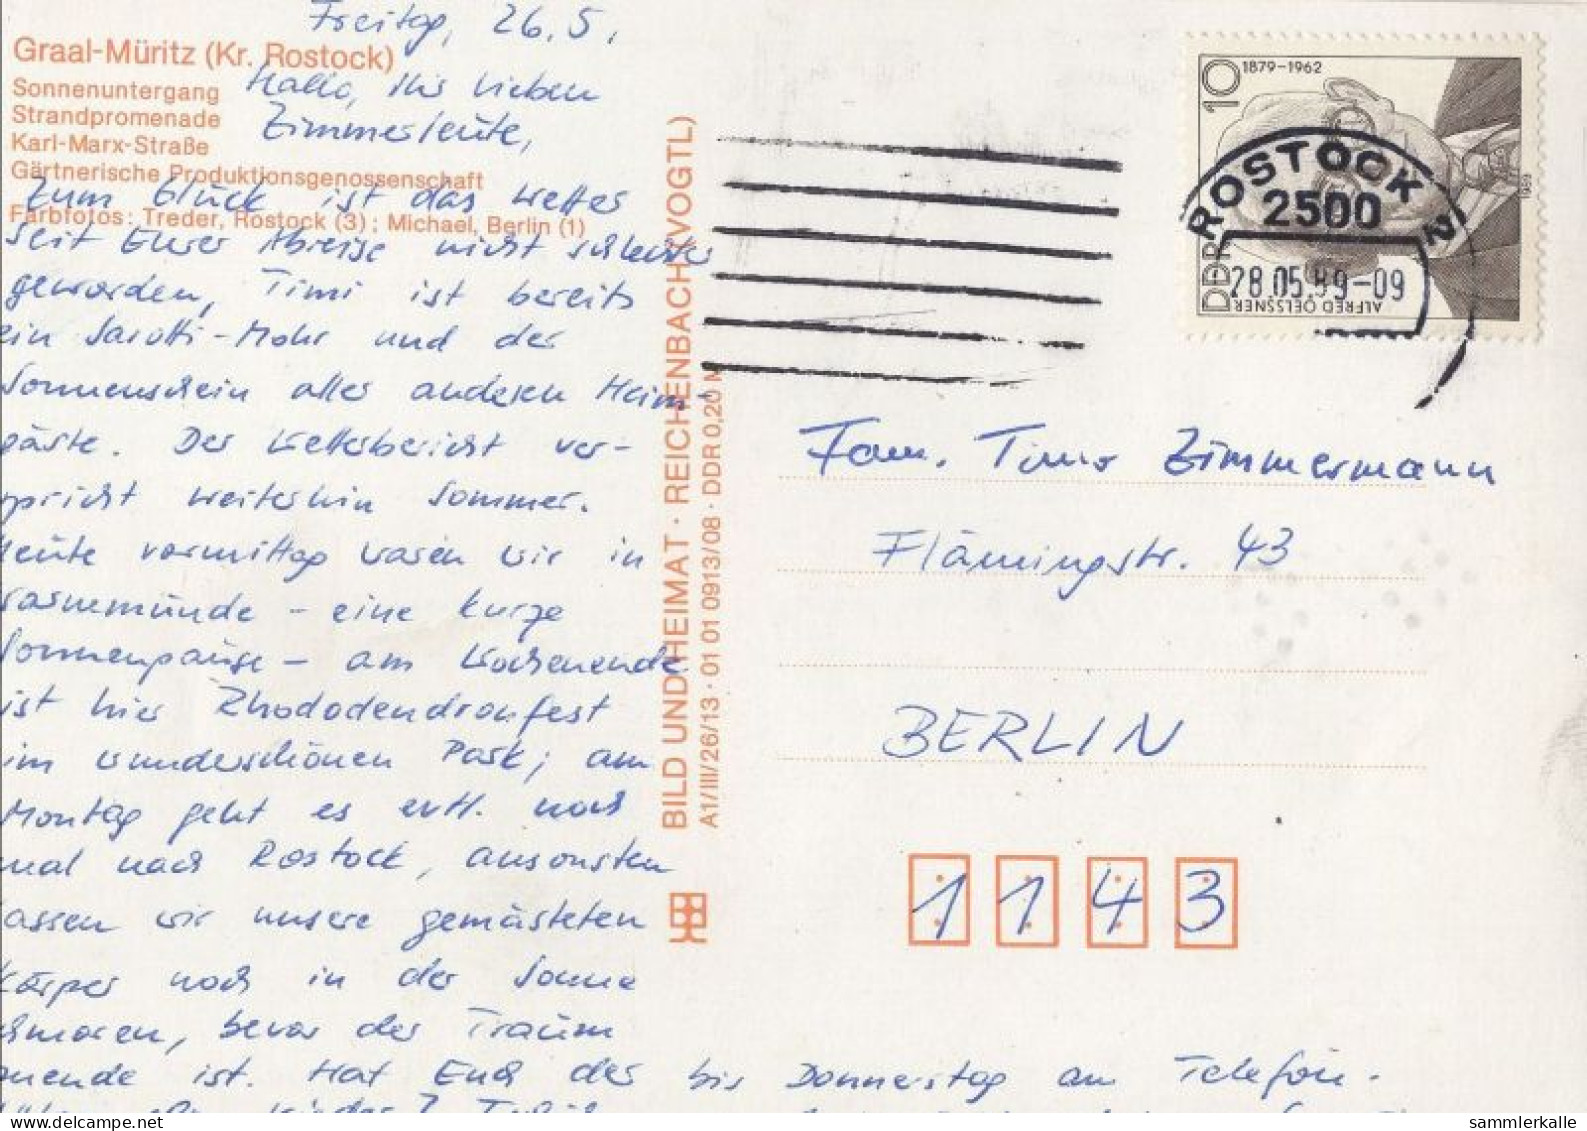 Freitag, 26.5.
Graal-Müritz (Kr. Rostock)
Sonnenuntergang
Strandpromenade
Karl-Marx-Straße
Gärtnerische Produktionsgenossenschaft
Farbfotos: Treder, Rostock (3); Michael, Berlin (1)
Hallo, Ihr lieben
Zimmerleute,
Zum Glück ist das Wetter
seit Eurer Abreise nicht schlechter
geworden, Timi ist bereits
ein Sarotti-Mohr und der
Sonnenschein aller anderen Heim-
gäste. Der Wetterbericht ver-
spricht weiterhin Sommer.
Heute vormittag waren wir in
Warnemünde - eine kurze
Sonnenpause - am Wochenende
ist hier Rhododendronfest
im wunderschönen Park; am
Montag geht es evtl. noch
mal nach Rostock, ansonsten
lassen wir unsere gemästeten
Körper noch in der Sonne
schmoren, bevor der Traum
zuende ist. Hat Euch der bis Donnerstag am Telefon.
BILD UND HEIMAT · REICHENBACH (VOGTL)
A1/III/26/13 · 01 01 0913/08 · DDR 0,20 M
10
1879-1962
DDR
ALFRED OELSSNER
1989
ROSTOCK 2
2500
28.05.89-09
Fam. Timo Zimmermann
Flämingstr. 43
BERLIN
1143
sammlerkalle